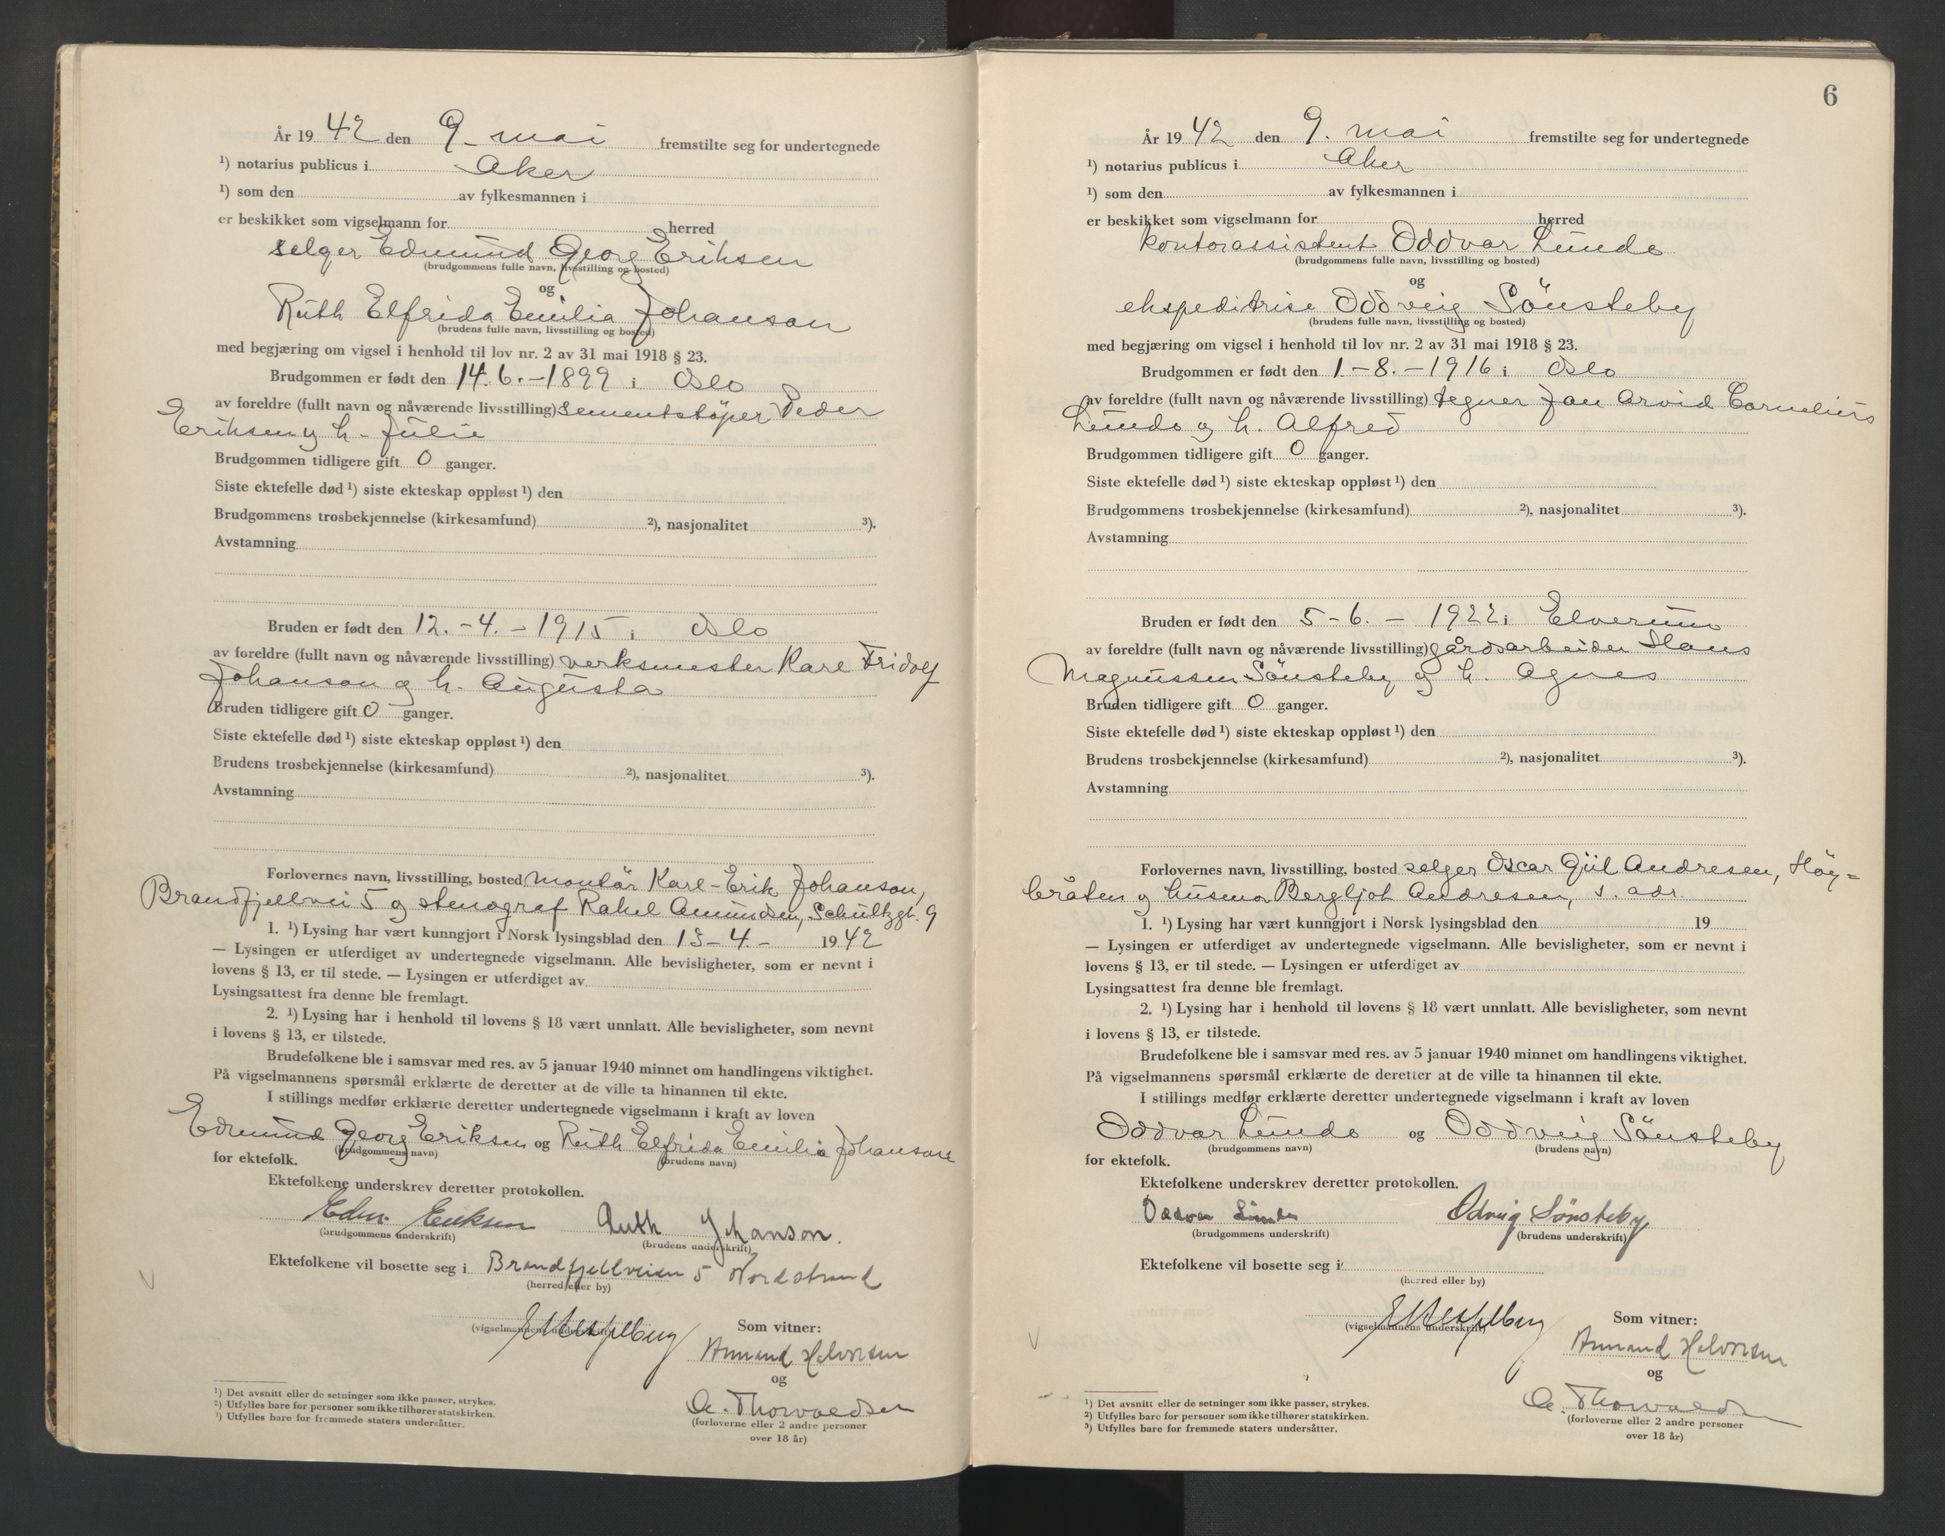 År 1942 den 9. mai fremstilte seg for undertegnede
¹) notarius publicus i Aker
¹) som den av fylkesmannen i
er beskikket som vigselmann for herred
selger Edmund Georg Eriksen
(brudgommens fulle navn, livsstilling og bosted)
og
Ruth Elfrida Emilia Johanson
(brudens fulle navn, livsstilling og bosted)
med begjæring om vigsel i henhold til lov nr. 2 av 31 mai 1918 § 23.
Brudgommen er født den 14.6.-1899 i Oslo
av foreldre (fullt navn og nåværende livsstilling) sementstöper Peder
Eriksen og h. Julie
Brudgommen tidligere gift 0 ganger.
Siste ektefelle død ¹) siste ekteskap oppløst ¹) den
Brudgommens trosbekjennelse (kirkesamfund) ²), nasjonalitet ³).
Avstamning
Bruden er født den 12.-4.-1915 i Oslo
av foreldre (fullt navn og nåværende livsstilling) verksmester Karl Fridolf
Johanson og h. Augusta
Bruden tidligere gift 0 ganger.
Siste ektefelle død ¹) siste ekteskap oppløst ¹) den
Brudens trosbekjennelse (kirkesamfund) ²), nasjonalitet ³).
Avstamning
Forlovernes navn, livsstilling, bosted montör Karl-Erik Johanson,
Brandfjellvei 5 og stenograf Rakel Amundsen, Schultzgt. 9
1. ¹) Lysing har vært kunngjort i Norsk lysingsblad den 15-4- 1942
— Lysingen er utferdiget av undertegnede vigselmann. Alle bevisligheter, som er nevnt i
lovens § 13, er til stede. — Lysingen er utferdiget av
Lysingsattest fra denne ble fremlagt.
2. ¹) Lysing har i henhold til lovens § 18 vært unnlatt. Alle bevisligheter, som nevnt
i lovens § 13, er tilstede.
Brudefolkene ble i samsvar med res. av 5 januar 1940 minnet om handlingens viktighet.
På vigselmannens spørsmål erklærte de deretter at de ville ta hinannen til ekte.
I stillings medfør erklærte deretter undertegnede vigselmann i kraft av loven
Edmund Georg Eriksen og Ruth Elfrida Emilia Johanson
(brudgommens navn) (brudens navn)
for ektefolk.
Ektefolkene underskrev deretter protokollen.
Edm. Eriksen Ruth Johanson.
(brudgommens underskrift) (brudens underskrift)
Ektefolkene vil bosette seg i Brandfjellveien 5 Nordstrand
(herred eller by)
(vigselmannens underskrift) Som vitner:
Armand Halvorsen
og
A. Thorvaldsen
(forloverne eller 2 andre personer
over 18 år)
¹) Det avsnitt eller de setninger som ikke passer, strykes.
²) Utfylles bare for personer som ikke tilhører statskirken.
³) Utfylles bare for fremmede staters undersåtter.
6
År 1942 den 9. mai fremstilte seg for undertegnede
¹) notarius publicus i Aker
¹) som den av fylkesmannen i
er beskikket som vigselmann for herred
kontorassistent Oddvar Lunde
(brudgommens fulle navn, livsstilling og bosted)
og
ekspeditrise Oddveig Sönsteby
(brudens fulle navn, livsstilling og bosted)
med begjæring om vigsel i henhold til lov nr. 2 av 31 mai 1918 § 23.
Brudgommen er født den 1-8.-1916 i Oslo
av foreldre (fullt navn og nåværende livsstilling) tegner Jan Arvid Cornelius
Lunde og h. Alfred
Brudgommen tidligere gift 0 ganger.
Siste ektefelle død ¹) siste ekteskap oppløst ¹) den
Brudgommens trosbekjennelse (kirkesamfund) ²), nasjonalitet ³).
Avstamning
Bruden er født den 5-6.-1922 i Elverum
av foreldre (fullt navn og nåværende livsstilling) gårdsarbeider Hans
Magnussen Sönsteby og h. Agnes
Bruden tidligere gift 0 ganger.
Siste ektefelle død ¹) siste ekteskap oppløst ¹) den
Brudens trosbekjennelse (kirkesamfund) ²), nasjonalitet ³).
Avstamning
Forlovernes navn, livsstilling, bosted selger Oscar Gjül Andresen, Höy=
bråten og husmor Bergljot Andresen, s. adr.
1. ¹) Lysing har vært kunngjort i Norsk lysingsblad den 19
— Lysingen er utferdiget av undertegnede vigselmann. Alle bevisligheter, som er nevnt i
lovens § 13, er til stede. — Lysingen er utferdiget av
Lysingsattest fra denne ble fremlagt.
2. ¹) Lysing har i henhold til lovens § 18 vært unnlatt. Alle bevisligheter, som nevnt
i lovens § 13, er tilstede.
Brudefolkene ble i samsvar med res. av 5 januar 1940 minnet om handlingens viktighet.
På vigselmannens spørsmål erklærte de deretter at de ville ta hinannen til ekte.
I stillings medfør erklærte deretter undertegnede vigselmann i kraft av loven
Oddvar Lunde og Oddveig Sönsteby
(brudgommens navn) (brudens navn)
for ektefolk.
Ektefolkene underskrev deretter protokollen.
Oddvar Lunde Odveig Sønsteby
(brudgommens underskrift) (brudens underskrift)
Ektefolkene vil bosette seg i
(herred eller by)
(vigselmannens underskrift) Som vitner:
Armand Halvorsen
og
A. Thorvaldsen
(forloverne eller 2 andre personer
over 18 år)
¹) Det avsnitt eller de setninger som ikke passer, strykes.
²) Utfylles bare for personer som ikke tilhører statskirken.
³) Utfylles bare for fremmede staters undersåtter.